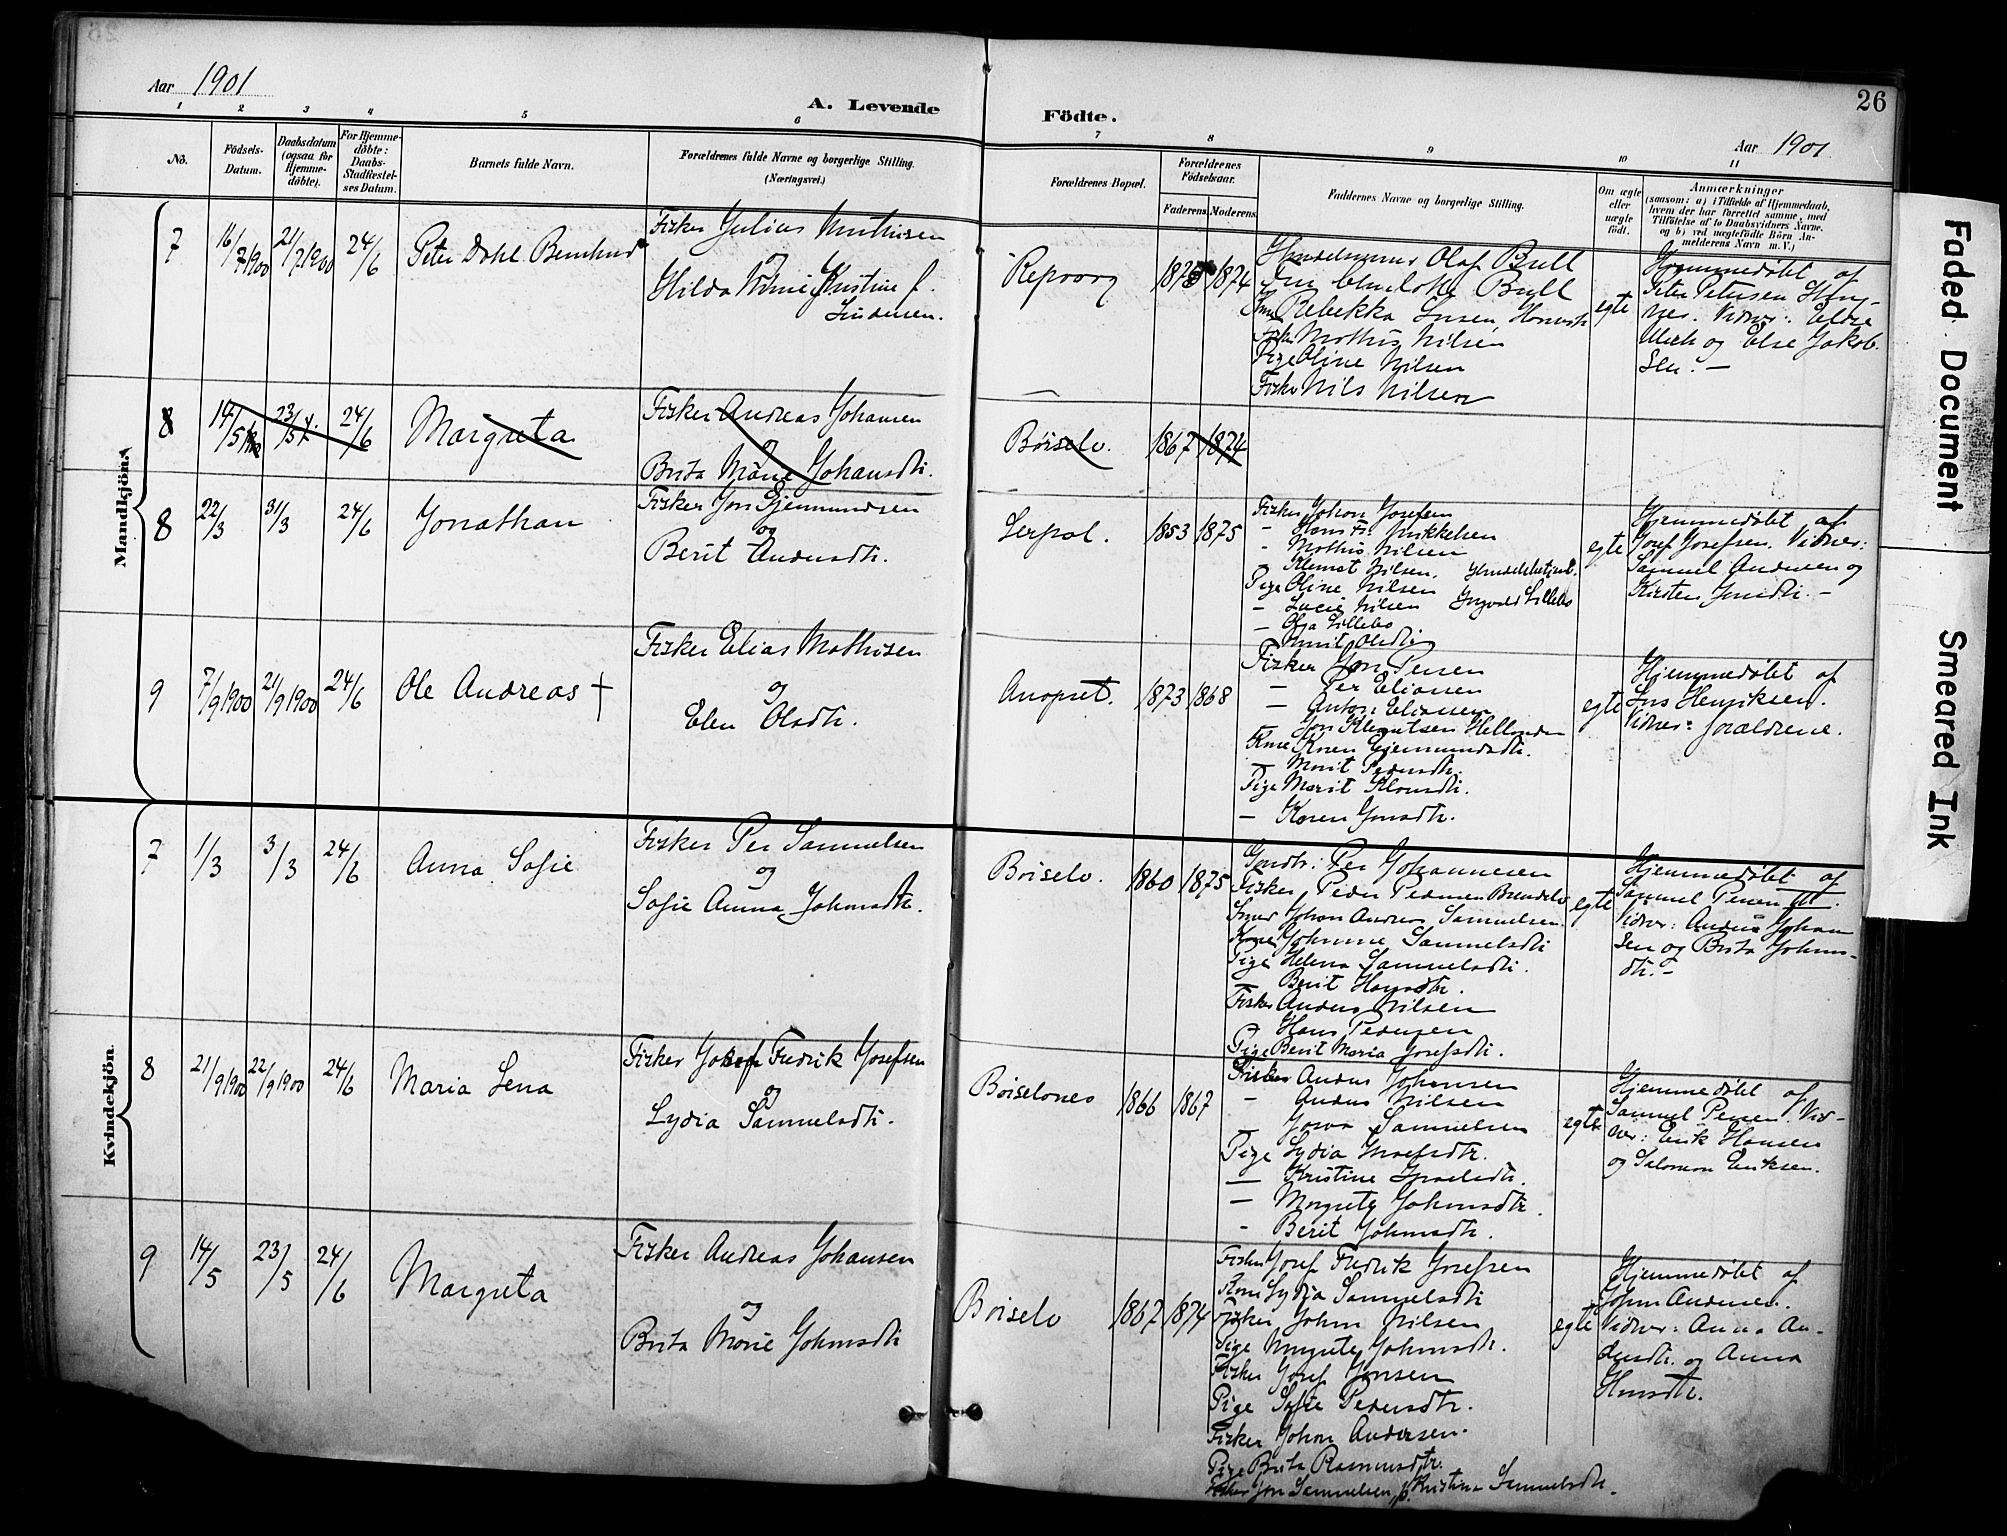 26
Aar 1901
A. Levende
Födte.
Aar 1901.
1 2 3 4 5 6 7 8 9 10 11
No.
Födsels-
Datum.
Daabsdatum
(ogsaa for
Hjemme-
döbte).
For Hjemme-
döbte:
Daabs-
Stadfæstel-
ses Datum.
Barnets fulde Navn.
Forældrenes fulde Navne og borgerlige Stilling.
(Næringsvei.)
Forældrenes Bopæl.
Forældrenes
Födselsaar.
Faderens.
Moderens.
Faddernes Navne og borgerlige Stilling.
Om ægte
eller
uægte
födt.
Anmærkninger
(saasom: a) i Tilfælde af Hjemmedaab,
hvem der har forrettet samme, med
Tilföielse af to Daabsvidners Navne,
og b) ved uægtefödte Börn An-
melderens Navn m. V.)
Mandkjön.
7
16/7 1900
21/7 1900
24/6
Peter Dahl
Fisker Julius Mathisen
og
Hilda
Repvaag
1874
Olaf Bull
Bull
Rebekka
Mathis Nilsen
Pige Oline Nilsen
Fisker Nils Nilsen
egte
Hjemmedøbt af
Peter Petersen
Vidner:
og Else Jakob-
sen. —
8
14/5
23/5
24/6
Margreta
Fisker Andreas Johansen
og
Brita Marie Johansdtr.
Børselv.
1867
1874
8
22/3
31/3
24/6
Jonathan
Fisker Jon Gjermundsen
og
Berit Andersdtr.
Lerpol.
1853
1875
Fisker Johan Josefsen
- Hans Fr. Mikkelsen
- Mathis Nilsen
- Klemet Nilsen.
Pige Oline Nilsen
- Lucie Nilsen
- Olga Lillebo
Ingvald Lillebo
egte
Hjemmedøbt af
Josef Josefsen. Vidner:
Samuel Andersen og
Kirsten
9
7/9 1900
21/9 1900
24/6
Ole Andreas +
Fisker Elias Mathisen
og
Elen Olsdtr.
Anopset.
1873
1868
Fisker Jon Persen
— Per Eliassen
— Anton Eliassen
— Jon Klemetsen
Kone Karen Gjermundsdtr.
— Marit Pedersdtr.
Pige Marit
— Karen Jonsdtr.
egte
Hjemmedøbt af
Lars Henriksen.
Vidner: Forældrene.
Kvindekjön.
7
1/3
3/3
24/6
Anna Sofie
Fisker Per Samuelsen
og
Sofie Anna Johansdtr.
Børselv.
1860
1875
Per Johannesen
Fisker Peder Pedersen
Johan Andreas Samuelsen
Kone Johanne Samuelsdtr
Pige Helena Samuelsdtr.
Berit Hansdtr.
Fisker Anders Nilsen
Hans Pedersen
Pige Berit Maria Josefsdtr.
egte
Hjemmedøbt af
Samuel Persen
Vidner: Andreas Johan-
sen og Brita Johans-
dtr. —
8
21/9 1900
22/9 1900
24/6
Maria Lena
Fisker Josef Fredrik Josefsen
og
Lydia Samuelsdtr.
Børselvnes
1866
1867
Fisker Anders Johansen
- Anders Nilsen
- Samuelsen
Pige Lydia Josefsdtr.
— Kristine Israelsdtr.
— Margrete Johansdtr.
- Berit Johansdtr.
egte
Hjemmedøbt af
Samuel Persen. Vid-
ner: Erik Hansen
og Salomon Eriksen.
9
14/5
23/5
24/6
Margreta
Fisker Andreas Johansen
og
Brita Marie Johansdtr
Børselv
1867
1874
Fisker Josef Fredrik Josefsen
Kone Lydia Samuelsdtr
Fisker Johan Nilsen
Pige Margrete Johansdtr.
Fisker Josef Jonsen
Pige Sofie Pedersdtr.
Fisker Johan Andersen.
Pige Brita Rasmusdtr.
Fisker Jon Samuelsen, p. Kristina Samuelsdtr.
egte
Hjemmedøbt af
Johan Andersen.
Vidner: Anna An-
dersdtr. og Anna
Hansdtr.
Faded Document
Smeared Ink